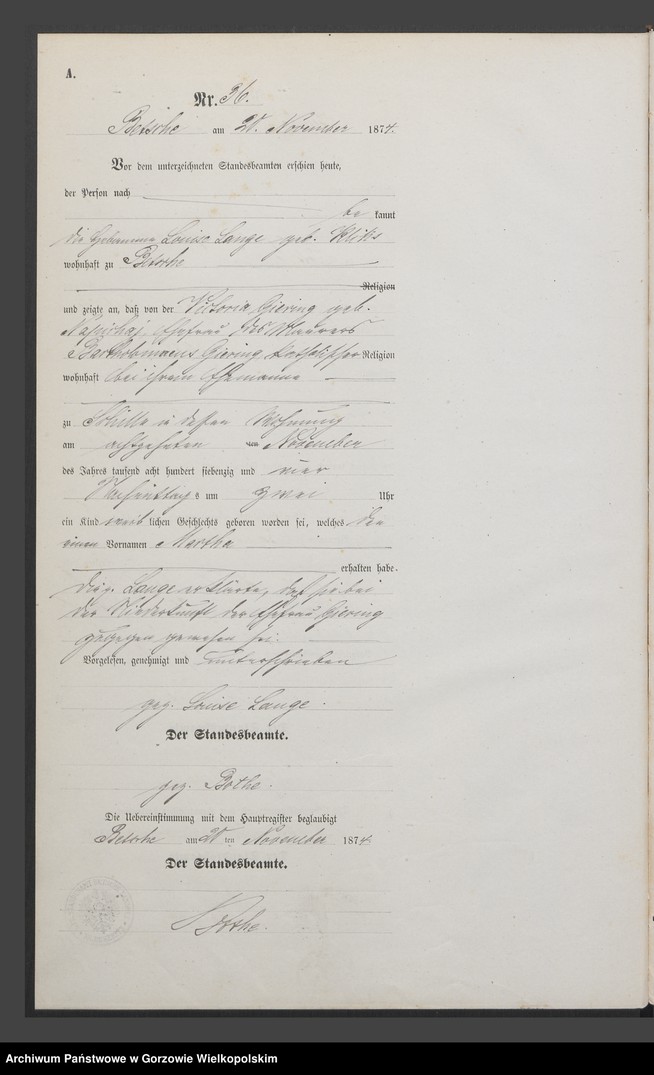 A.
Nr. 36.
Betsche am 20. November 1874.
Vor dem unterzeichneten Standesbeamten erschien heute,
der Person nach
be kannt
die Hebamme Louise Lange geb.
wohnhaft zu Betsche
Religion
und zeigte an, daß von der Victoria Giering geb.
Ehefrau des Maurers
Bartholomaeus Giering, katholischer Religion
wohnhaft bei ihrem Ehemanne
zu in dessen Wohnung
am achtzehnten ten November
des Jahres tausend acht hundert siebenzig und vier
Nachmittags um zwei Uhr
ein Kind weib lichen Geschlechts geboren worden sei, welches den
einen Vornamen Martha
erhalten habe.
Die p. Lange erklärte, daß sie bei
der Niederkunft der Ehefrau Giering
zugegen gewesen sei.
Vorgelesen, genehmigt und unterschrieben
gez. Louise Lange.
Der Standesbeamte.
gez. Bothe.
Die Uebereinstimmung mit dem Hauptregister beglaubigt
Betsche am 20 ten November 1874.
Der Standesbeamte.
Bothe.
Archiwum Państwowe w Gorzowie Wielkopolskim